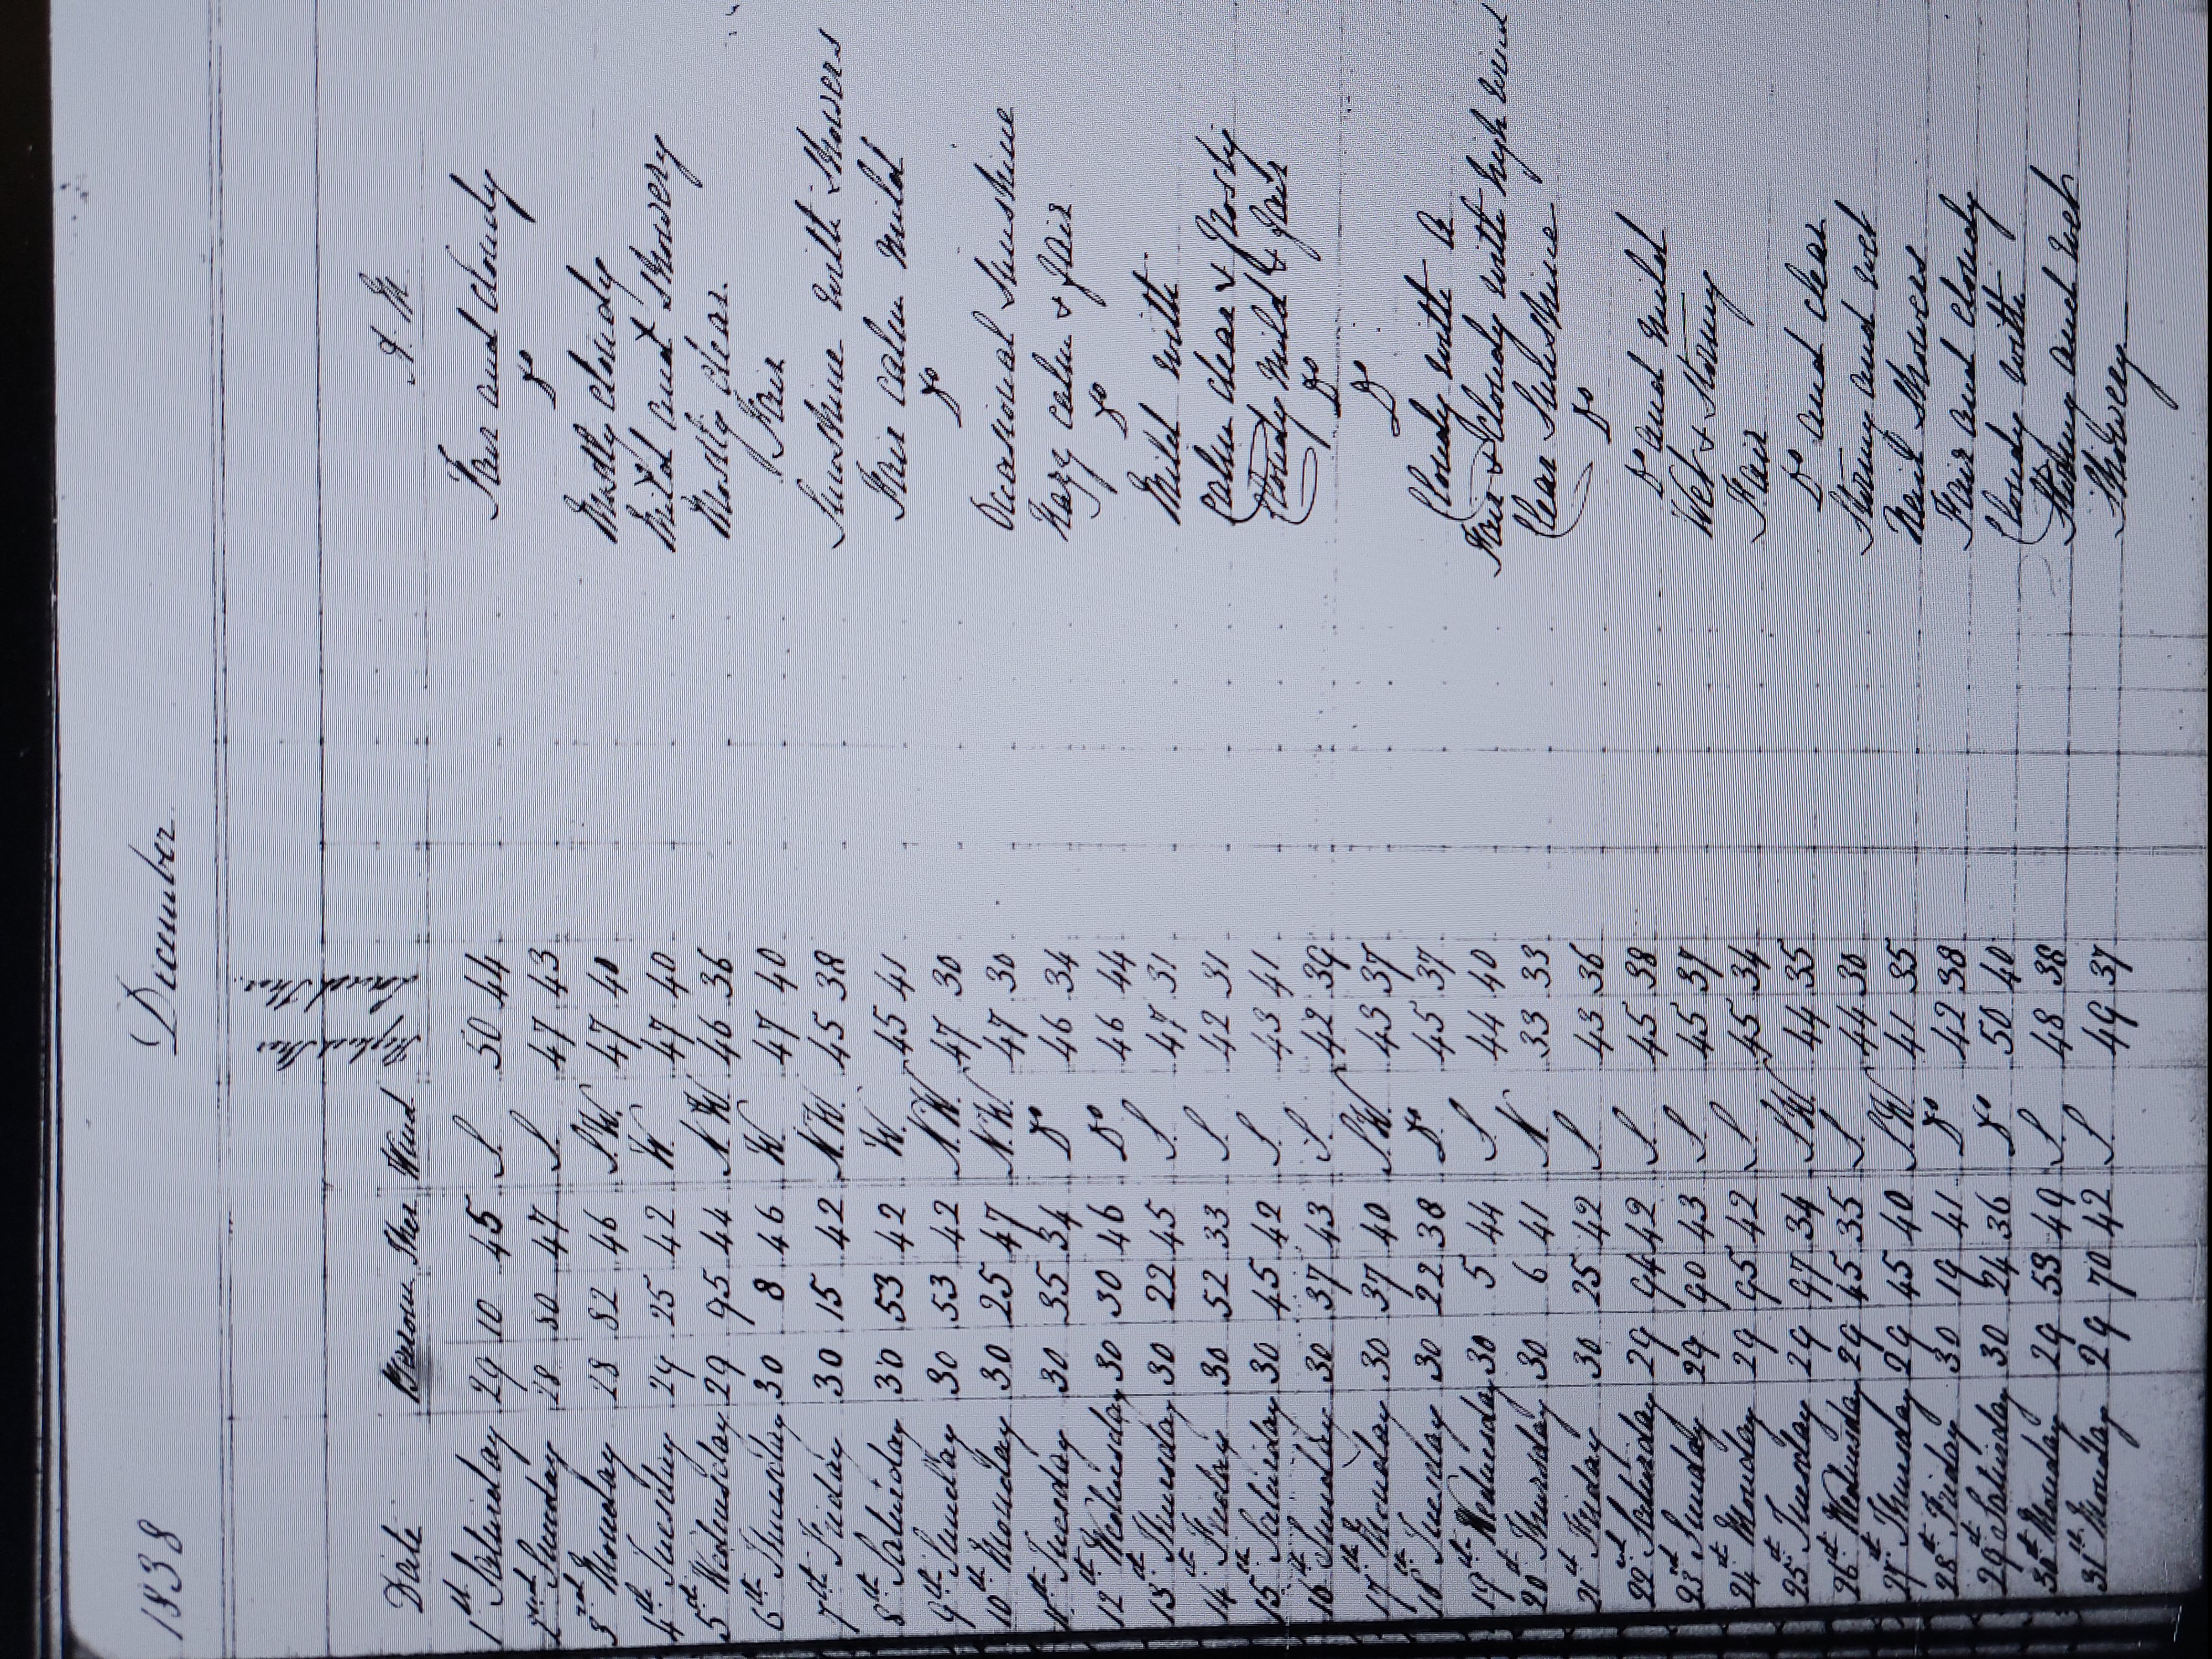 1838 December
Highest Ther
Lowest Ther.
Date Barom Ther Wind A. M.
1st Saturday 29 10 45 S. 50 44 Fair and cloudy
2nd Sunday 28 80 47 S. 47 43 Do
3rd Monday 28 82 46 S.W. 47 40 Mostly cloudy
4th Tuesday 29 25 42 W. 47 40 Mild and showery
5th Wednesday 29 95 44 N.W. 46 36 Mostly clear.
6th Thursday 30 8 46 W. 47 40 Fair
7th Friday 30 15 42 N.W. 45 38 Sunshine with Showers
8th Saturday 30 53 42 W. 45 41 Fair calm mild
9th Sunday 30 53 42 N.W. 47 30 Do
10th Monday 30 25 47 N.W. 47 30 Occasional Sunshine
11th Tuesday 30 35 34 Do 46 34 Hazy calm & fair
12th Wednesday 30 30 46 Do 46 44 Do
13th Thursday 30 22 45 S. 47 31 Mild with
14th Friday 30 52 33 S. 42 31 Calm clear & frosty
15th Saturday 30 45 42 S. 43 41 Cloudy mild & fair
16th Sunday 30 37 43 S. 42 39 Do
17th Monday 30 37 40 S.W. 43 37 Do
18th Tuesday 30 22 38 Do 45 37 Cloudy with a
19th Wednesday 30 5 44 S. 44 40 Fair & cloudy with high wind
20th Thursday 30 6 41 N. 33 33 Clear Sunshine
21st Friday 30 25 42 S. 43 36 Do
22nd Saturday 29 94 42 S. 45 38 Do and mild
23rd Sunday 29 90 43 S. 45 37 Wet & Stormy
24th Monday 29 95 42 S. 45 34 Fair
25th Tuesday 29 97 34 S.W. 44 35 Do and clear
26th Wednesday 29 45 35 S. 44 30 Stormy and wet
27th Thursday 29 45 40 S.W. 41 35 Hail Showers
28th Friday 30 19 41 Do 42 38 Fair and cloudy
29th Saturday 30 24 36 Do 50 40 Cloudy with
30th Monday 29 53 49 S. 48 38 Stormy and wet
31st Monday 29 70 42 S. 49 37 Showery